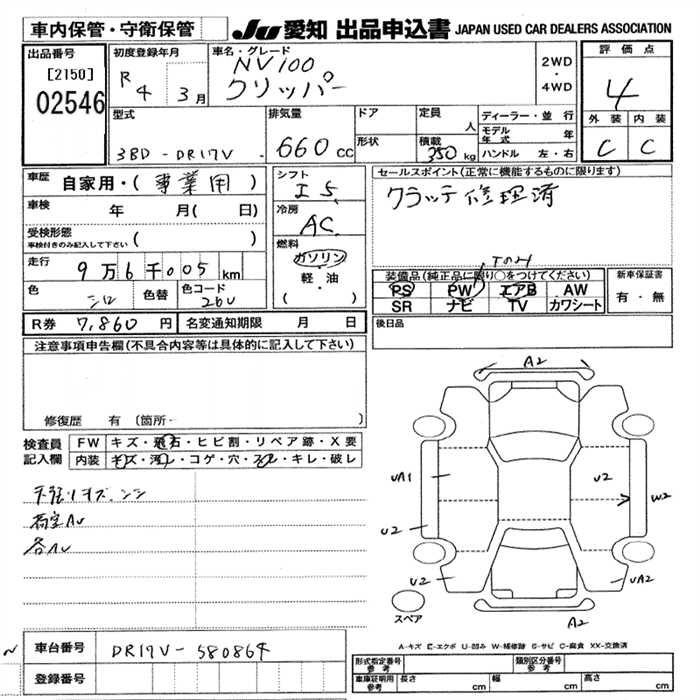 車内保管・守衛保管
JU 愛知 出品申込書 JAPAN USED CAR DEALERS ASSOCIATION
出品番号
[2150]
02546
初度登録年月
R 4 3月
車名・グレード
NV100
クリッパー
2WD
・
4WD
評価点
4
外装 内装
C C
型式
3BD - DR17V
排気量
660 cc
ドア
形状
定員
人
積載
350 kg
ディーラー・並行
モデル年式 年
ハンドル 左・右
車歴
自家用・(事業用)
車検
年 月(日)
受検形態
車検付きのみ記入して下さい ( )
走行
9万6千005km
色
シロ
色替
色コード
26U
シフト
I 5
冷房
AC
燃料
ガソリン
軽・油
( )
セールスポイント(正常に機能するものに限ります)
クラッチ修理済
装備品(純正品に限り○をつけてください)
PS PW エアB AW
SR ナビ TV カワシート
新車保証書
有・無
R券 7,860円
名変通知期限 月 日
後日品
注意事項申告欄(不具合内容等は具体的に記入して下さい)
修復歴 有 (箇所・ )
検査員記入欄
FW キズ・飛石・ヒビ割・リペア跡・X要
内装 キズ・汚レ・コゲ・穴・スレ・キレ・破レ
各AU
A2
UA1
U2
U2
U2
W2
U2
UA2
A2
スペア
A-キズ E-エクボ U-凹み W-補修跡 S-サビ C-腐食 XX-交換済
車台番号 DR17V-580864
登録番号
形式指定番号 参考
類別区分番号 参考
車庫証明用 参考
長さ cm
幅 cm
高さ cm